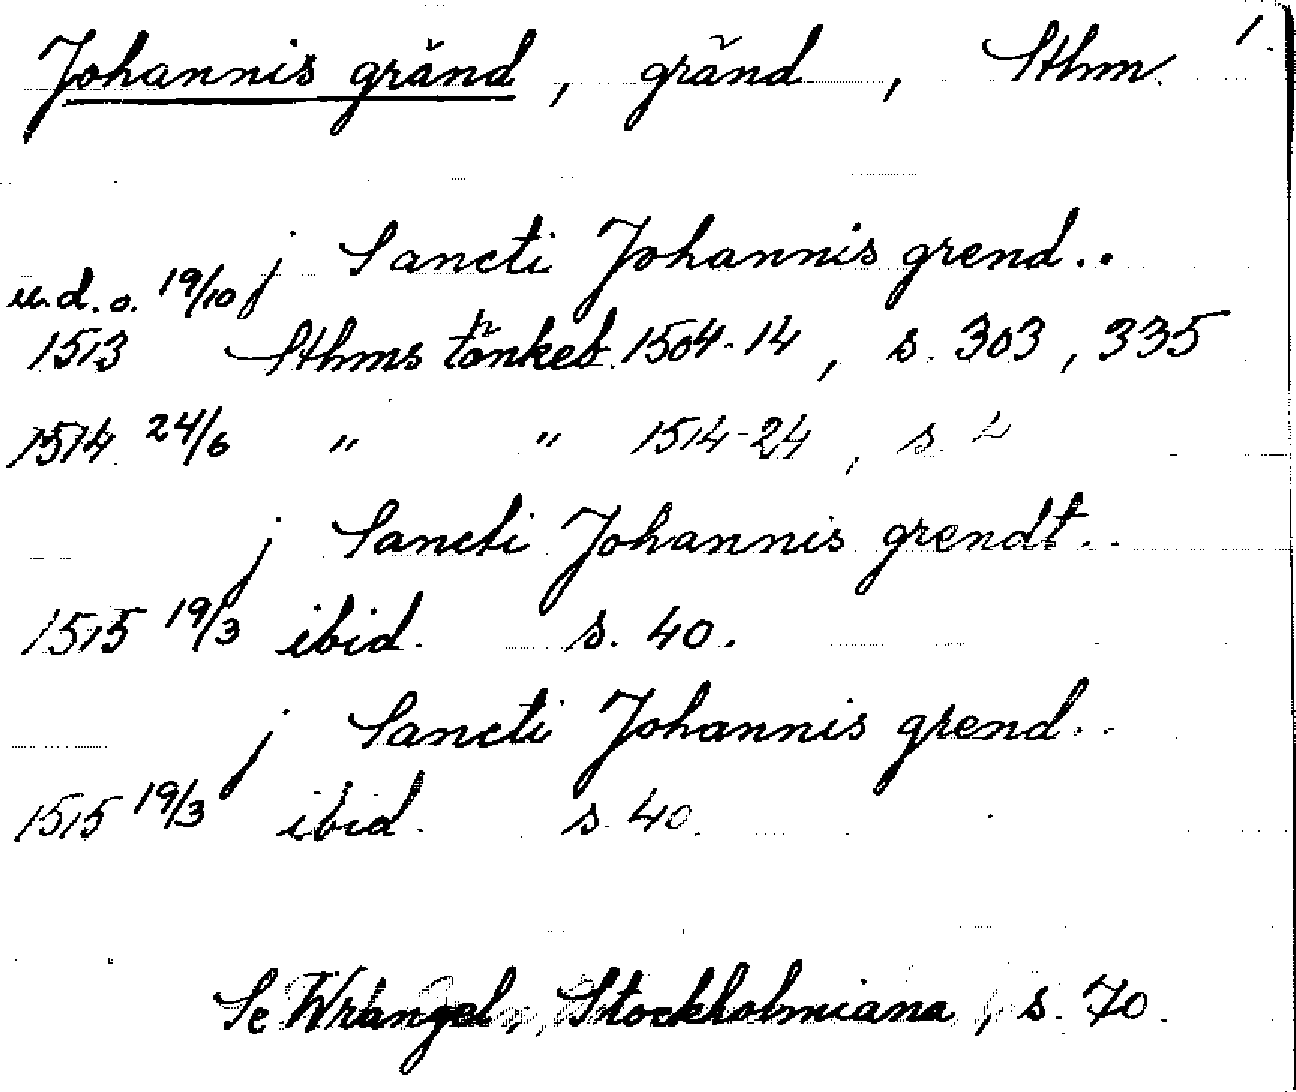 Johannis gränd, gränd, Sthm. 1.
j Sancti Johannis grend..
u.d.o. 19/10
1513 Sthms tänkeb. 1504-14, s. 303, 335
1514 24/6 " " 1514-24, s. 2
j Sancti Johannis grendt..
1515 19/3 ibid. s. 40.
j Sancti Johannis grend..
1515 19/3 ibid. s. 40.
Se Wrangel, Stockholmiana, s. 70.